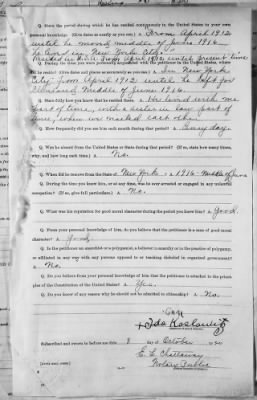 Q. State the period during which he has resided continuously in the United States to your own
personal knowledge. (Give dates as nearly as you can.) A. From April 1912
until he moved middle of June 1916
he lived in New York City.
resided in U.S.A. from April 1912 until present time
Q. During the time you were personally acquainted with the petitioner in the United States, where
did he reside? (Give dates and places as accurately as you can.) A. In New York
City from April 1912 until he left for
Middle of June 1916.
Q. State fully how you know that he resided there. A. He lived with me
part of time, with a sister in law part of
time, when we visited each other.
Q. How frequently did you see him each month during that period? A. Every day.
Q. Was he absent from the United States during any part of that time? (If so, state how many times,
why, and how long each time.) A. No.
Q. When did he remove from the State of New York A. 1916 Middle of June
Q. During the time you knew him, or at any time, was he ever arrested or engaged in any unlawful
occupation? (If so, give full particulars.) A. No.
Q. What was his reputation for good moral character during the period you knew him? A. Good.
Q. From your personal knowledge of him, do you believe that the petitioner is a man of good
moral character? A. Good.
Q. Is the petitioner an anarchist or a polygamist, a believer in anarchy or in the practice of polygamy,
or affiliated in any way with any persons opposed to or teaching disbelief in organized government?
A. No.
Q. Do you believe from your personal knowledge of him that the petitioner is attached to the princi-
ples of the Constitution of the United States? A. Yes.
Q. Do you know of any reason why he should not be admitted to citizenship? A. No.
Ida Koslowitz
Subscribed and sworn to before me this 8 day of October
Notary Public